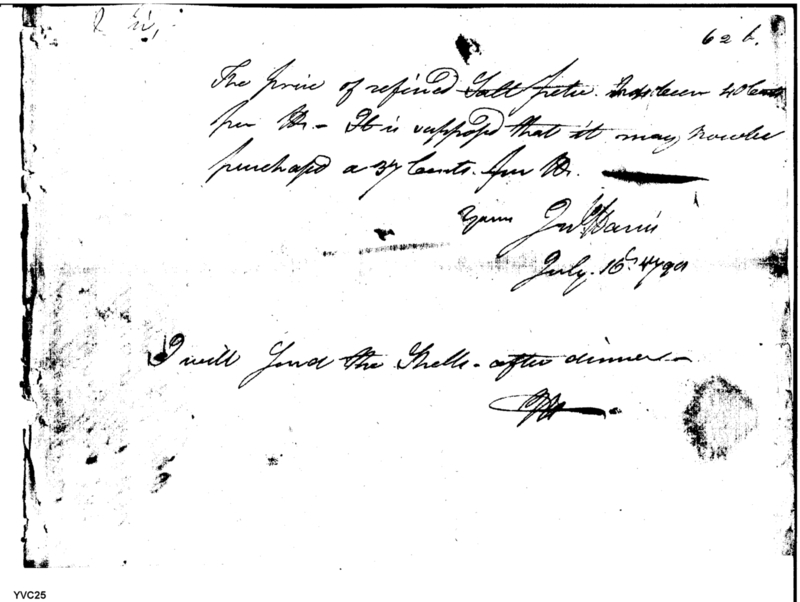 Sir,
62 b.
The price of refined Salt petre has been 40 Cents
per lb. - It is supposed that it may now be
purchased a 37 Cents. per lb.
Yours Jno. Davis
July. 16th. 1790
I will send the Shells - after dinner -
YVC25